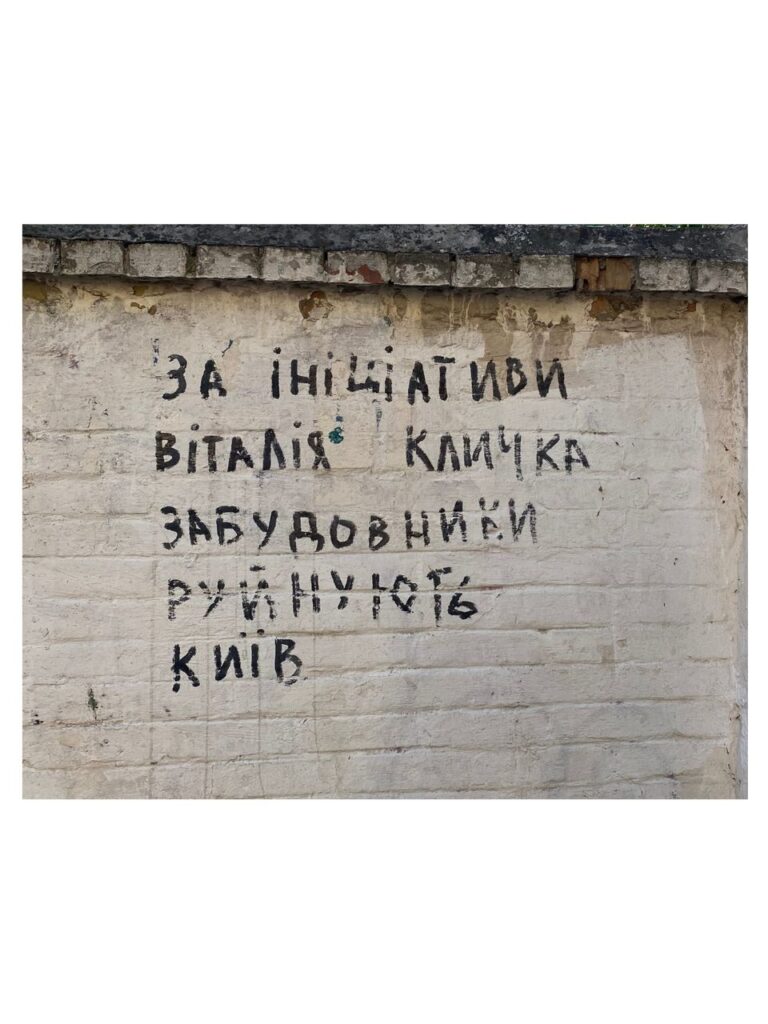 ЗА ІНІЦІАТИВИ
ВІТАЛІЯ КЛИЧКА
ЗАБУДОВНИКИ
РУЙНУЮТЬ
КИЇВ